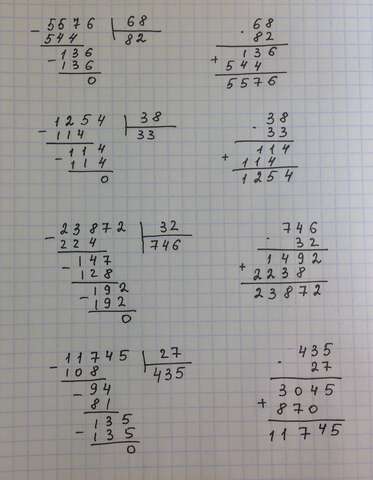 - 5576 | 68
544 | 82
- 136
136
0
· 68
82
+ 136
544
5576
- 1254 | 38
114 | 33
- 114
114
0
· 38
33
+ 114
114
1254
- 23872 | 32
224 | 746
- 147
128
- 192
192
0
· 746
32
+ 1492
2238
23872
- 11745 | 27
108 | 435
- 94
81
- 135
135
0
· 435
27
+ 3045
870
11745